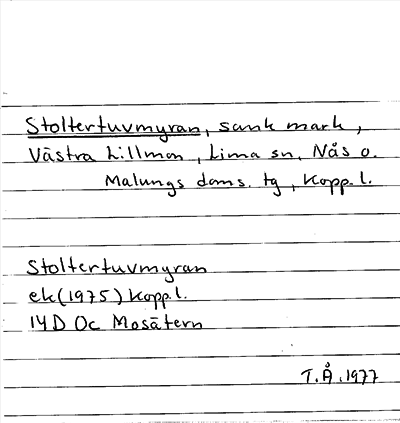 Stoltertuvmyran, sank mark,
Västra Lillmon, Lima sn, Nås o.
Malungs doms. tg, Kopp. l.
Stoltertuvmyran
ek (1975) Kopp. l.
14D Oc Mosätern
T.Å. 1977